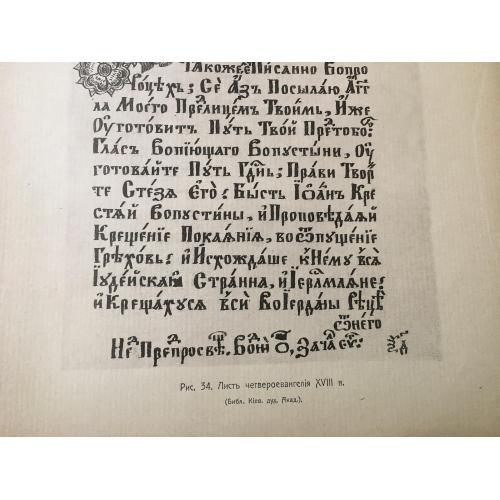 Ꙗкоже Писанно Вопро
роцѣхъ; Сѐ А҆́зъ Посылаю Агг҃
ла Моего̀ Пред̾лицемъ Твоимь, И҆́же
Оу҆готовитъ Пꙋть Твой Пред̾тобо
Гла́съ Вопїю́щаго Вопустыни, Оу҆
готовайте Пꙋть Гдн҃ь; Пра́ви Твор
те Стезѧ Его̀; Бы́сть Іѡ҆а́нъ Кре
стѧ́й Вопустины, и҆ Проповѣдаѧ́й
Крещенїе Покаѧнїѧ, во ѿпущенїе
Грѣховъ; и҆ И҆схождаше к̾ Немꙋ всѧ̀
Іꙋдейскаѧ Странна, и҆ Іерⷭ҇лмлѧне;
и҆ Крещахусѧ всѝ Во Іерда́ны Рѣцѣ
ѿ не́го
Неⷣ Преⷣпросвѣⷳ. Боⷢ҇оѧⷡ, Зача́ Еѵⷢ;
Рис. 34. Листъ четвероевангелія XVIII в.
(Библ. Кіев. дух. Акад.).